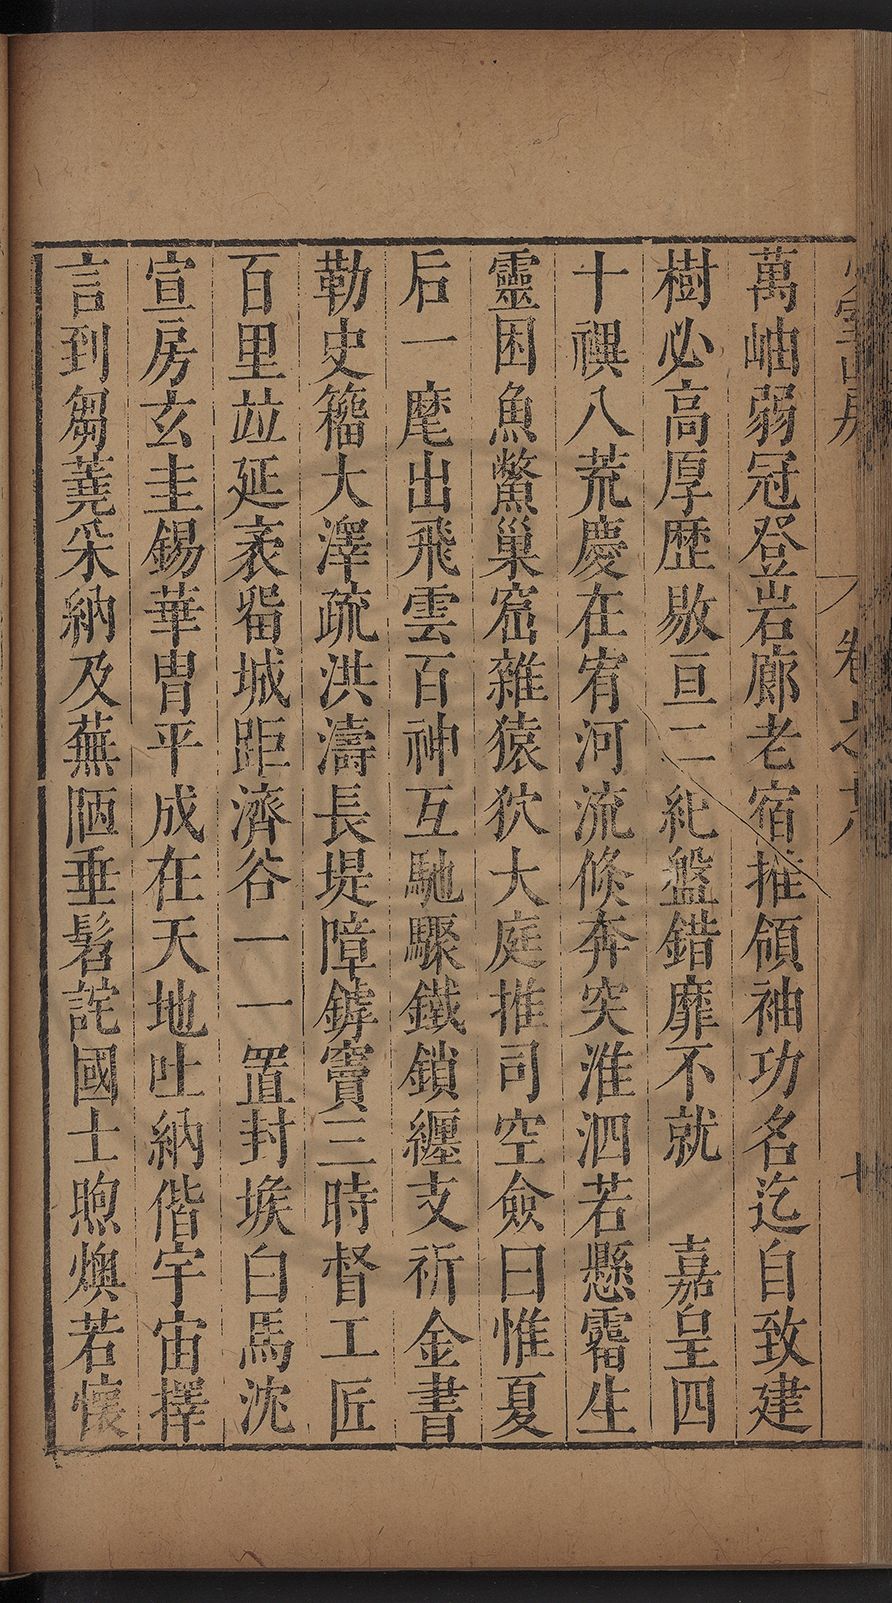 少室山房 卷之十八 七
萬岫弱冠登岩廊老宿推領袖功名迄自致建
樹必高厚歷敭亘二紀盤錯靡不就　嘉皇四
十禩八荒慶在宥河流倏奔突淮泗若懸霤生
靈困魚鱉巢窟雜猿狖大庭推司空僉曰惟夏
后一麾出飛雲百神互馳驟鐵鎖纏支祈金書
勒史籀大澤疏洪濤長堤障鎼竇三時督工匠
百里竝延袤畱城距濟谷一一置封堠白馬沈
宣房玄圭錫華冑平成在天地吐納偕宇宙擇
言到芻蕘采納及蕪陋垂髫詫國士煦燠若懷